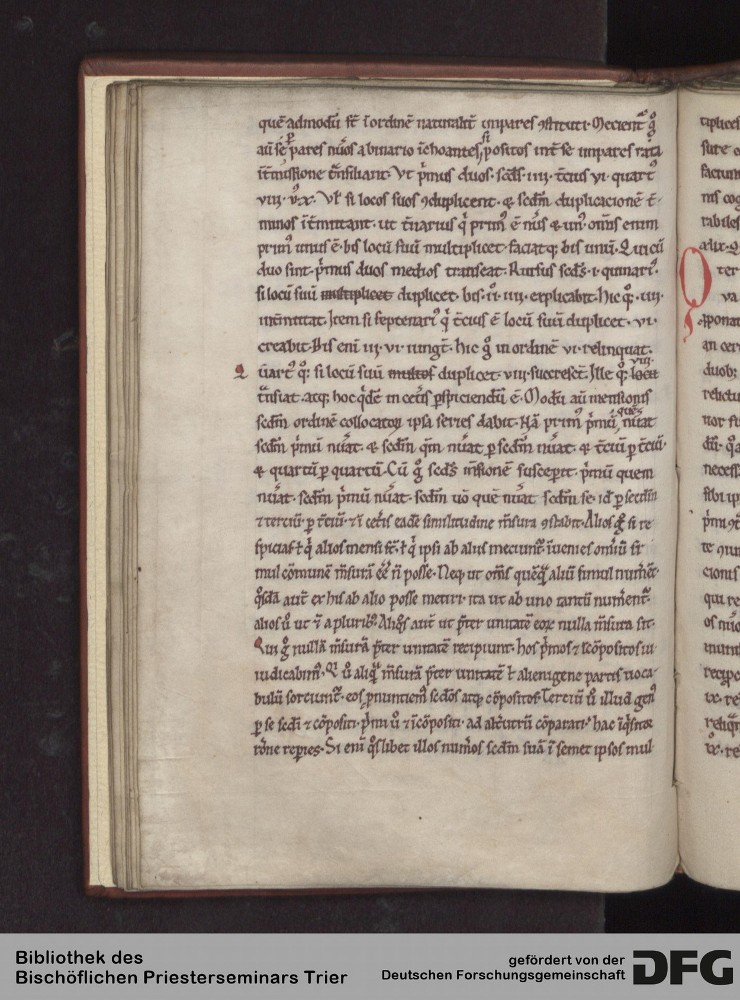 quē admodū st̄ ī ordinē naturalit̄ impares ꝯstituti· Mecient᷑ g̊
aū sē pares nūos a binario īchoantes, positos int̄ se impares rata
īt̄missione t̄nsiliant· Vt p̄mus duos· scds̄ iiii· t̄cius vi· quart᷒
viii· v᷒ x· Vl̄ si locos suos ꝯduplicent· & scdm̄ duplicacionē t̄
minos īt̄mittant· ut t̄narius q̇ prim᷒ ē nūs & un᷒· om̄is enim
prim᷒ unus ē· bis locū suū multiplicet· faciatq; bis unū· Qui cū
duo sint· p̄mus duos medios transeat· Rursus scds̄· i· quinari᷒·
si locū suū multiplicet duplicet· bis· ii· iiii· explicabit· hic q;· iiii·
int̄mittat· Item si septenari᷒ q̇ t̄cius ē locū suū duplicet· vi·
creabit· Bis eni iii· vi· iungt̄· hic g̊ in ordinē vi· relinquat·
Q uart᷒ q; si locū suū multos duplicet· viii· succrescet̄· Ille q; viii· locū
t̄nsiat· atq; hoc q̇dē in cet̄is ꝑspiciendū ē· Modū aū mensionis
scdm̄ ordinē collocatoꝝ ipsa series dabit· Nā prim᷒ p̄mū quē nūat
scdm̄ p̄mū nūat· & scdm̄ qm̄ nūat ꝑ scdm̄ nūat· & t̄ciū ꝑ t̄ciū·
& quartū ꝑ quartū· Cū g̊ scds̄ m̄sionē susceperit· p̄mū quem
nūat· scdm̄ p̄mū nūat· scdm̄ uō quē nūat scdm̄ se· id ꝑ secdm̄
& terciū· ꝑ t̄ciū· & ī cet̄is eadē similitudine m̄sura ꝯstabit· Alios g̊ si re
spicias· t̄ q̇ alios mensi st̄· t̄ q̇ ipsi ab aliis meciunt᷑· īuenies omiū si
mul cōmunē m̄surā eē n̄ posse· Neq; ut om̄s quēq̄ aliū simul num̄et·
q̊sdā aut̄ ex his ab alio posse metiri· ita ut ab uno tantū num̄ent᷑·
alios u̇ ut ī a plurib᷒· Aliq̊s aut̄ ut p̄ter unitatē eoꝝ nulla m̄sura sit·
Qui g̊ nullā m̄surā p̄ter unitatē recipiunt· hos p̄mos & īcōpositos iu
iudicabim᷒· Qi u̇ aliq̄ m̄surā p̄ter unitatē t̄ alienigene partis uoca
bulū sorciunt᷑· eos ꝓnunciem᷒ scdos atq; cōpositos· Terciū u̇ illud gen᷒
ꝑ se scdi & cōpositi· p̄mi u̇ & īcōpositi· ad alt̄utrū cōparati· hac īq̇sitoe
rōne reperies· Si eni q̊slibet illos num̄os scdm̄ suā ī semet ipsos mul
Bibliothek des
Bischöflichen Priesterseminars Trier
gefördert von der
Deutschen Forschungsgemeinschaft
DFG